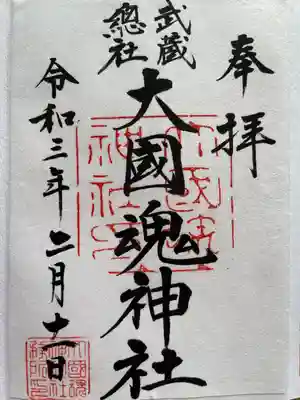 奉拝
武蔵
總社
大國魂神社
令和三年二月十一日